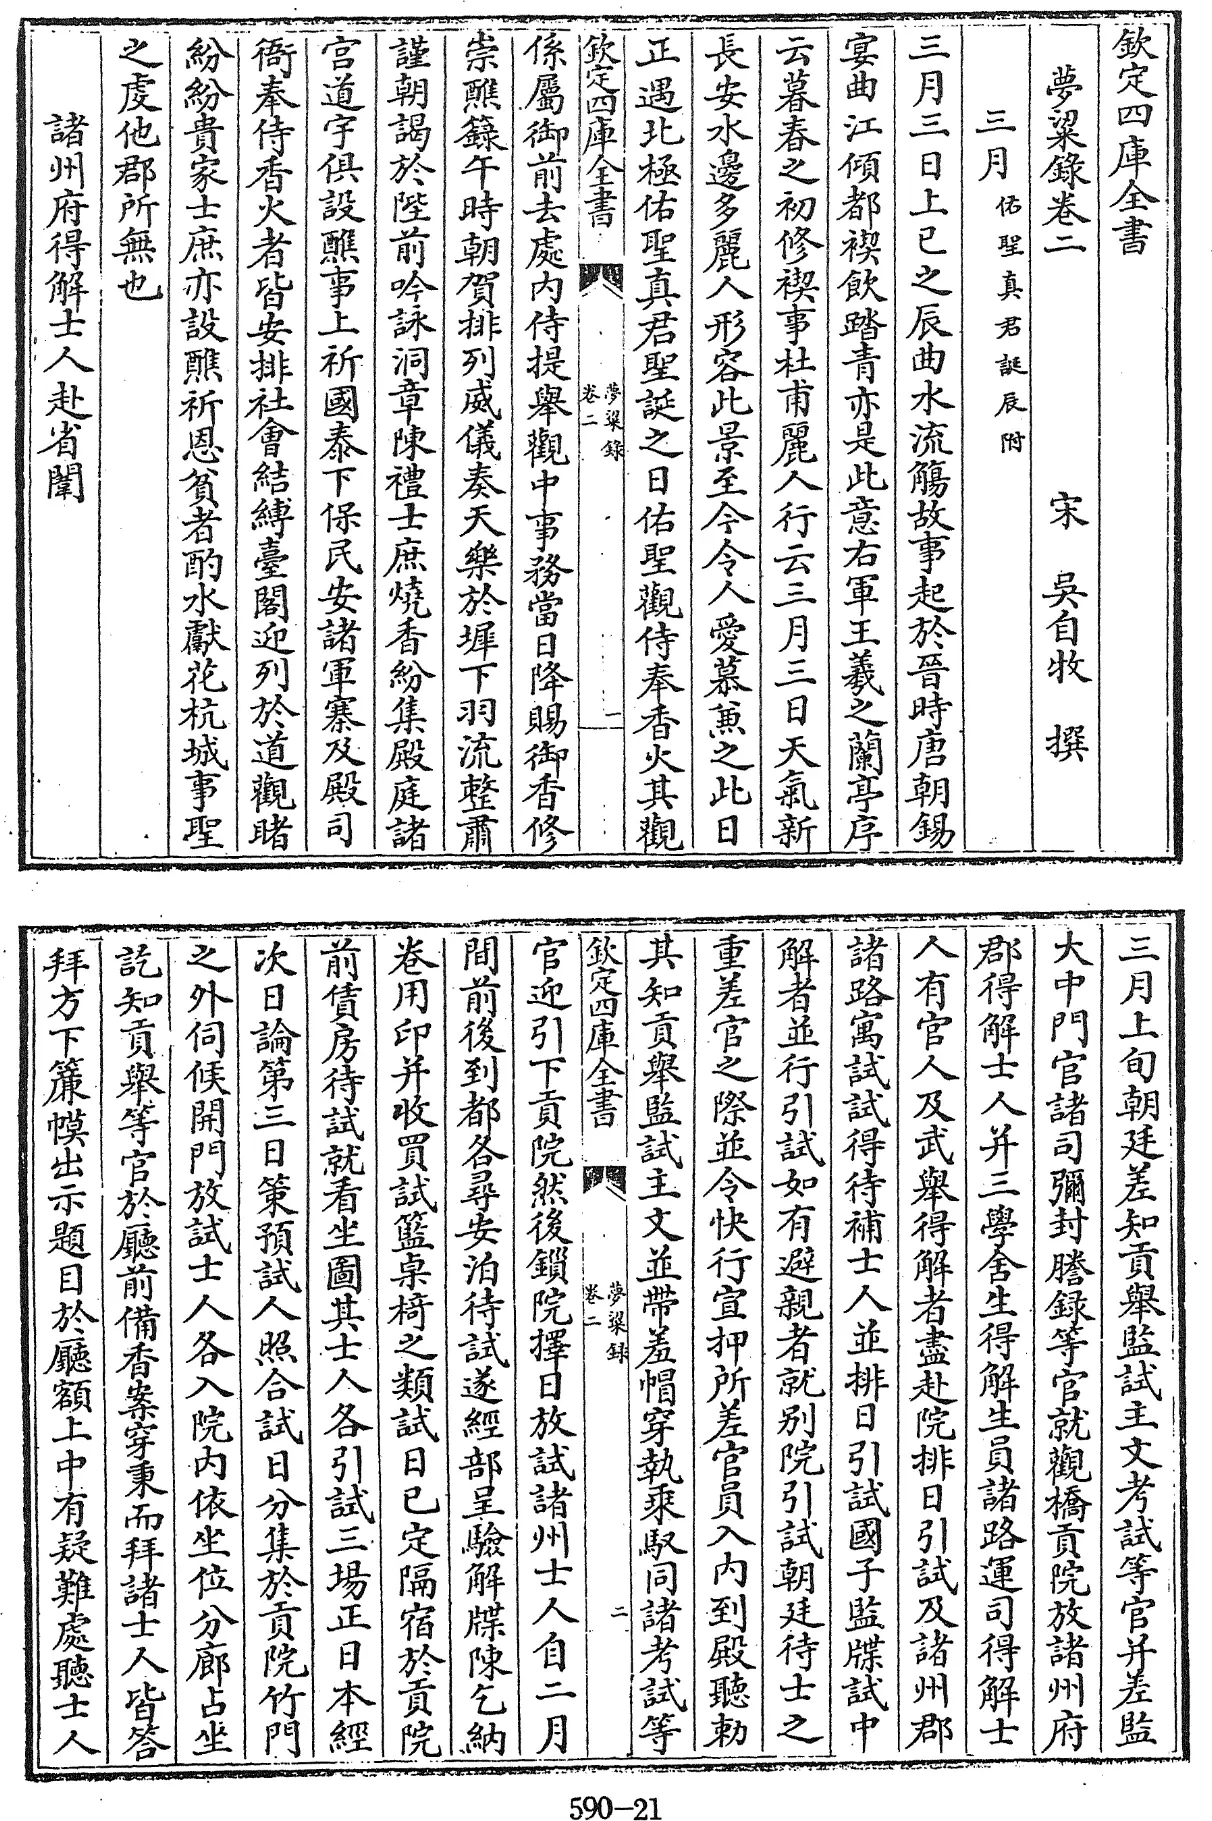 欽定四庫全書
夢粱錄卷二
宋 吳自牧 撰
三月 佑聖真君誕辰附
三月三日上巳之辰曲水流觴故事起於晉時唐朝錫
宴曲江傾都禊飲踏青亦是此意右軍王羲之蘭亭序
云暮春之初修禊事杜甫麗人行云三月三日天氣新
長安水邊多麗人形容此景至今令人愛慕兼之此日
正遇北極佑聖真君聖誕之日佑聖觀侍奉香火其觀
欽定四庫全書 夢粱錄 卷二 一
係屬御前去處內侍提舉觀中事務當日降賜御香修
崇醮籙午時朝賀排列威儀奏天樂於墀下羽流整肅
謹朝謁於陛前吟詠洞章陳禮士庶燒香紛集殿庭諸
宮道宇俱設醮事上祈國泰下保民安諸軍寨及殿司
衙奉侍香火者皆安排社會結縛臺閣迎列於道觀睹
紛紛貴家士庶亦設醮祈恩貧者酌水獻花杭城事聖
之虔他郡所無也
諸州府得解士人赴省闈
三月上旬朝廷差知貢舉監試主文考試等官并差監
大中門官諸司彌封謄録等官就觀橋貢院放諸州府
郡得解士人并三學舍生得解生員諸路運司得解士
人有官人及武舉得解者盡赴院排日引試及諸州郡
諸路寓試試得待補士人並排日引試國子監牒試中
解者並行引試如有避親者就別院引試朝廷待士之
重差官之際並令快行宣押所差官員入內到殿聽勅
其知貢舉監試主文並帶羞帽穿執乘馭同諸考試等
欽定四庫全書 夢粱録 卷二 二
官迎引下貢院然後鎖院擇日放試諸州士人自二月
間前後到都各尋安泊待試遂經部呈驗解牒陳乞納
卷用印并收買試籃桌椅之類試日已定隔宿於貢院
前賃房待試就看坐圖其士人各引試三場正日本經
次日論第三日策預試人照合試日分集於貢院竹門
之外伺候開門放試士人各入院內依坐位分廊占坐
訖知貢舉等官於廳前備香案穿秉而拜諸士人皆答
拜方下簾幙出示題目於廳額上中有疑難處聽士人
590-21